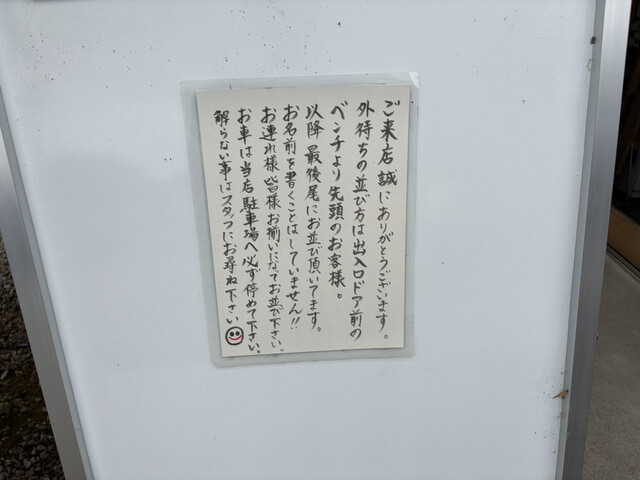 ご来店誠にありがとうございます。
外待ちの並び方は出入口ドア前の
ベンチより先頭のお客様。
以降最後尾にお並び頂いてます。
お名前を書くことはしていません!!
お連れ様皆様お揃いになってお並び下さい。
お車は当店駐車場へ必ず停めて下さい。
解らない事はスタッフにお尋ね下さい